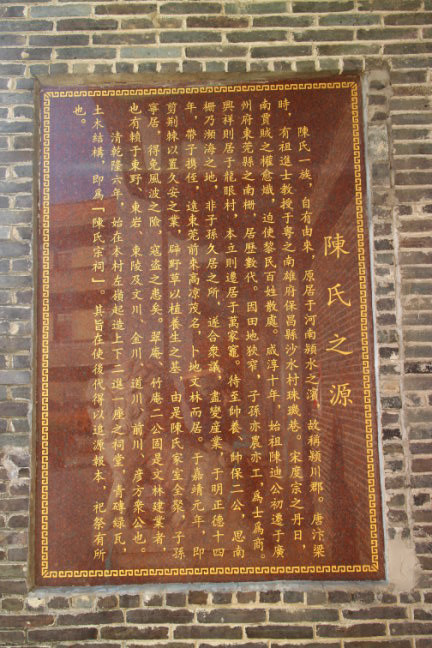 陳氏之源
陳氏一族，自有由來，原居于河南潁水之濱，故稱潁川郡。唐汴梁
時，有祖進士教授于粵之南雄府保昌縣沙水村珠璣巷。宋度宗之丹日，
南賈賊之權愈熾，迫使黎民百姓散處。咸淳十年，始祖陳迪公初遷于廣
州府東莞縣之南柵，居歷數代。因田地狹窄，子孫亦農亦工，爲士爲商。
興祥則居于龍眼村，本立則遷居于萬家竈。待至帥養、帥保二公，思南
柵乃瀕海之地，非子孫久居之所，遂合衆議，盡變産業，于明正德十四
年，帶子携侄，遠東莞前來高凉茂名，卜地文林而居。于嘉靖元年，即
剪荆棘以置久安之業，辟野草以植養生之基，由是陳氏家室全聚，子孫
寧居，得免風波之險，寇盗之患矣。翠庵、竹庵二公固是文林建業者，
也有賴于東野、東岩、東陵及文川、金川、道川、前川、彦方衆公也。
清乾隆六年，始在本村左嶺起造上下二進一座之祠堂，青磚緑瓦，
土木結構，即爲「陳氏宗祠」。其旨在使後代得以追源報本，祀祭有所
也。